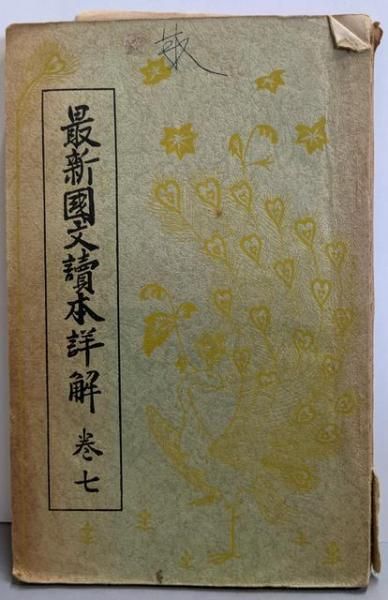 最新國文讀本詳解 卷七